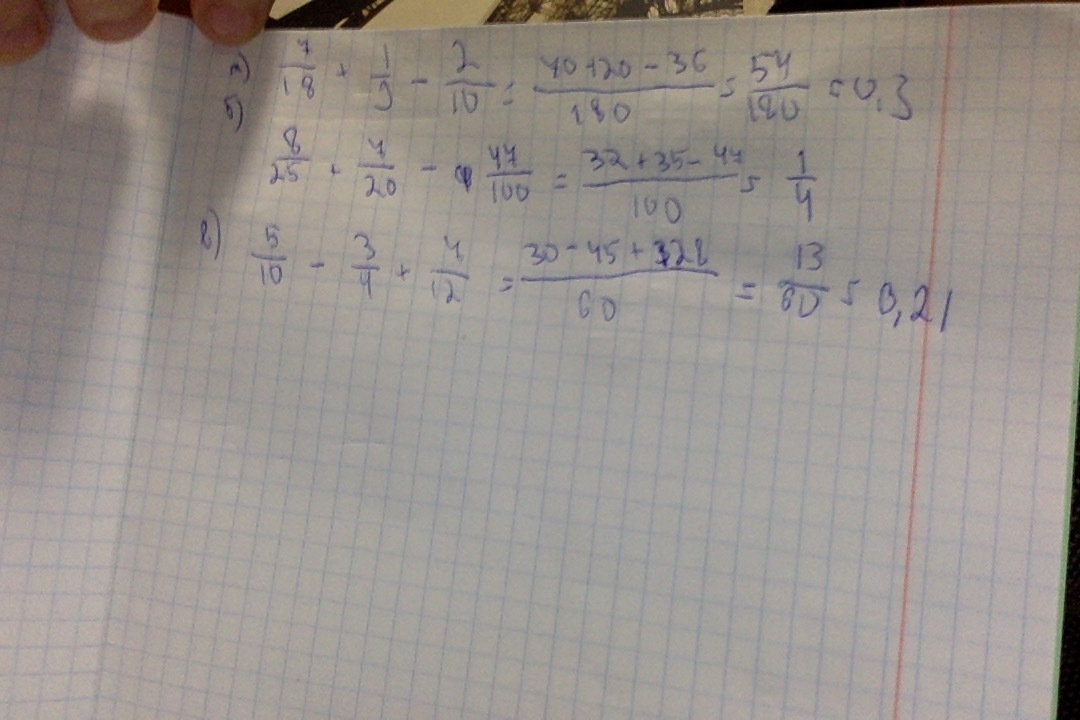 а) 7/18 + 1/9 - 2/10 = (70+20-36)/180 = 54/180 = 0,3
б) 8/25 + 7/20 - 47/100 = (32+35-47)/100 = 1/4
г) 5/10 - 3/4 + 7/12 = (30-45+28)/60 = 13/60 = 0,21